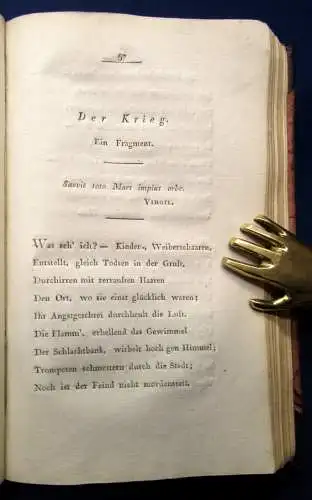 67
Der Krieg.
Ein Fragment.
Saevit toto Mars impius orbe.
VIRGIL.
Was seh' ich? — Kinder-, Weiberschaaren,
Entstellt, gleich Todten in der Gruft,
Durchirren mit zerrauften Haaren
Den Ort, wo sie einst glücklich waren;
Ihr Angstgeschrei durchheult die Luft.
Die Flamm', erhellend das Gewimmel
Der Schlachtbank, wirbelt hoch gen Himmel;
Trompeten schmettern durch die Stadt;
Noch ist der Feind nicht mordenssatt.